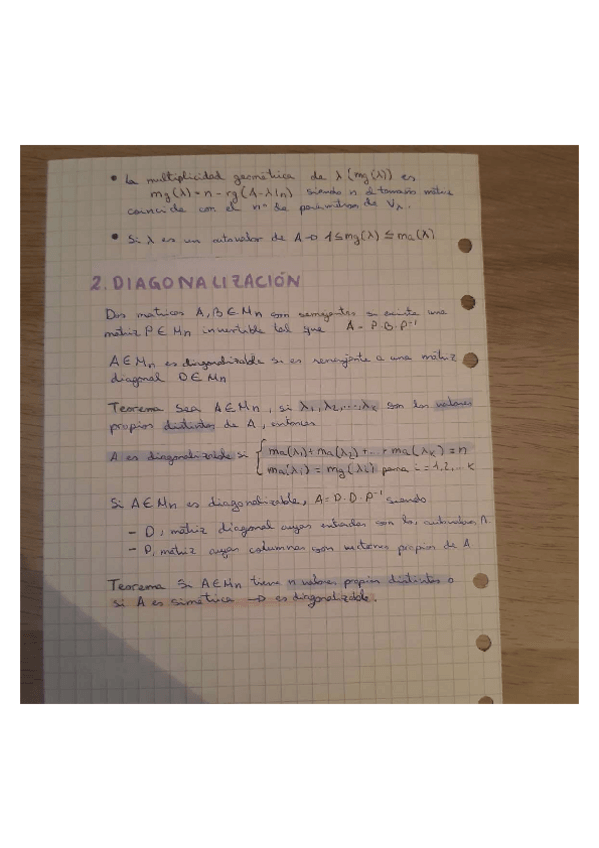 • La multiplicidad geométrica de λ (mg(λ)) es
mg(λ) = n - rg(A-λIn) siendo n el tamaño matriz
coincide con el nº de parámetros de Vλ.
• Si λ es un autovalor de A → 1 ≤ mg(λ) ≤ ma(λ)
2. DIAGONALIZACIÓN
Dos matrices A, B ∈ Mn son semejantes si existe una
matriz P ∈ Mn invertible tal que A = P·B·P⁻¹
A ∈ Mn es diagonalizable si es semejante a una matriz
diagonal D ∈ Mn
Teorema Sea A ∈ Mn, si λ1, λ2, ..., λk son los valores
propios distintos de A, entonces
A es diagonalizable si { ma(λ1) + ma(λ2) + ... + ma(λk) = n
ma(λi) = mg(λi) para i = 1, 2, ... K
Si A ∈ Mn es diagonalizable, A = P·D·P⁻¹ siendo
- D, matriz diagonal cuyas entradas son los autovalores
- P, matriz cuyas columnas son vectores propios de A
Teorema Si A ∈ Mn tiene n valores propios distintos o
si A es simétrica → es diagonalizable.